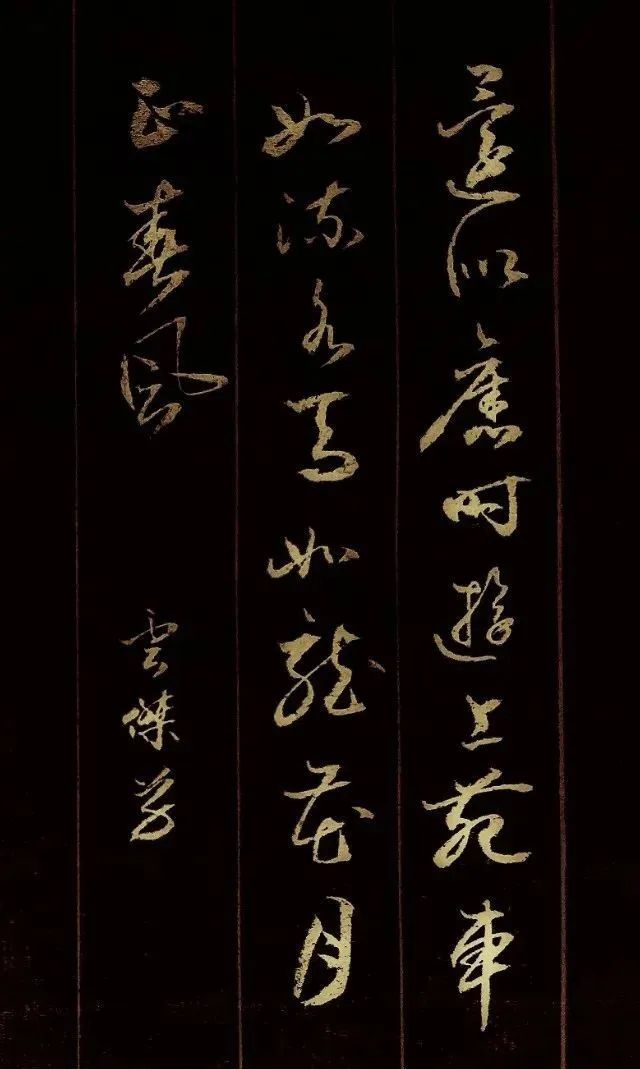 還似舊時遊上苑車
如流水馬如龍花月
正春風
雲傑草